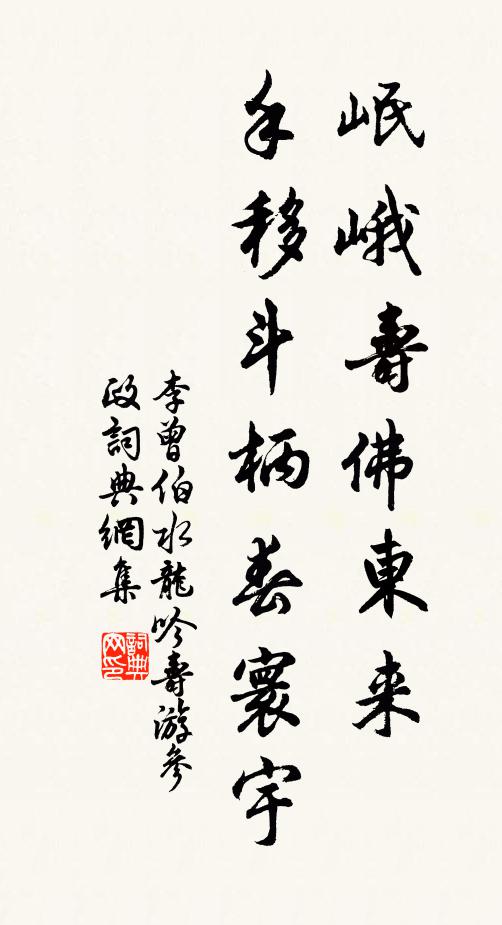 岷峨壽佛東来
手移斗柄春寰宇
李曾伯水龍吟壽游參
政詞典網集
詞典網印